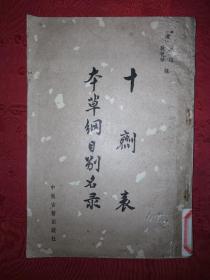 十剂表
本草綱目别名录
中医古籍出版社